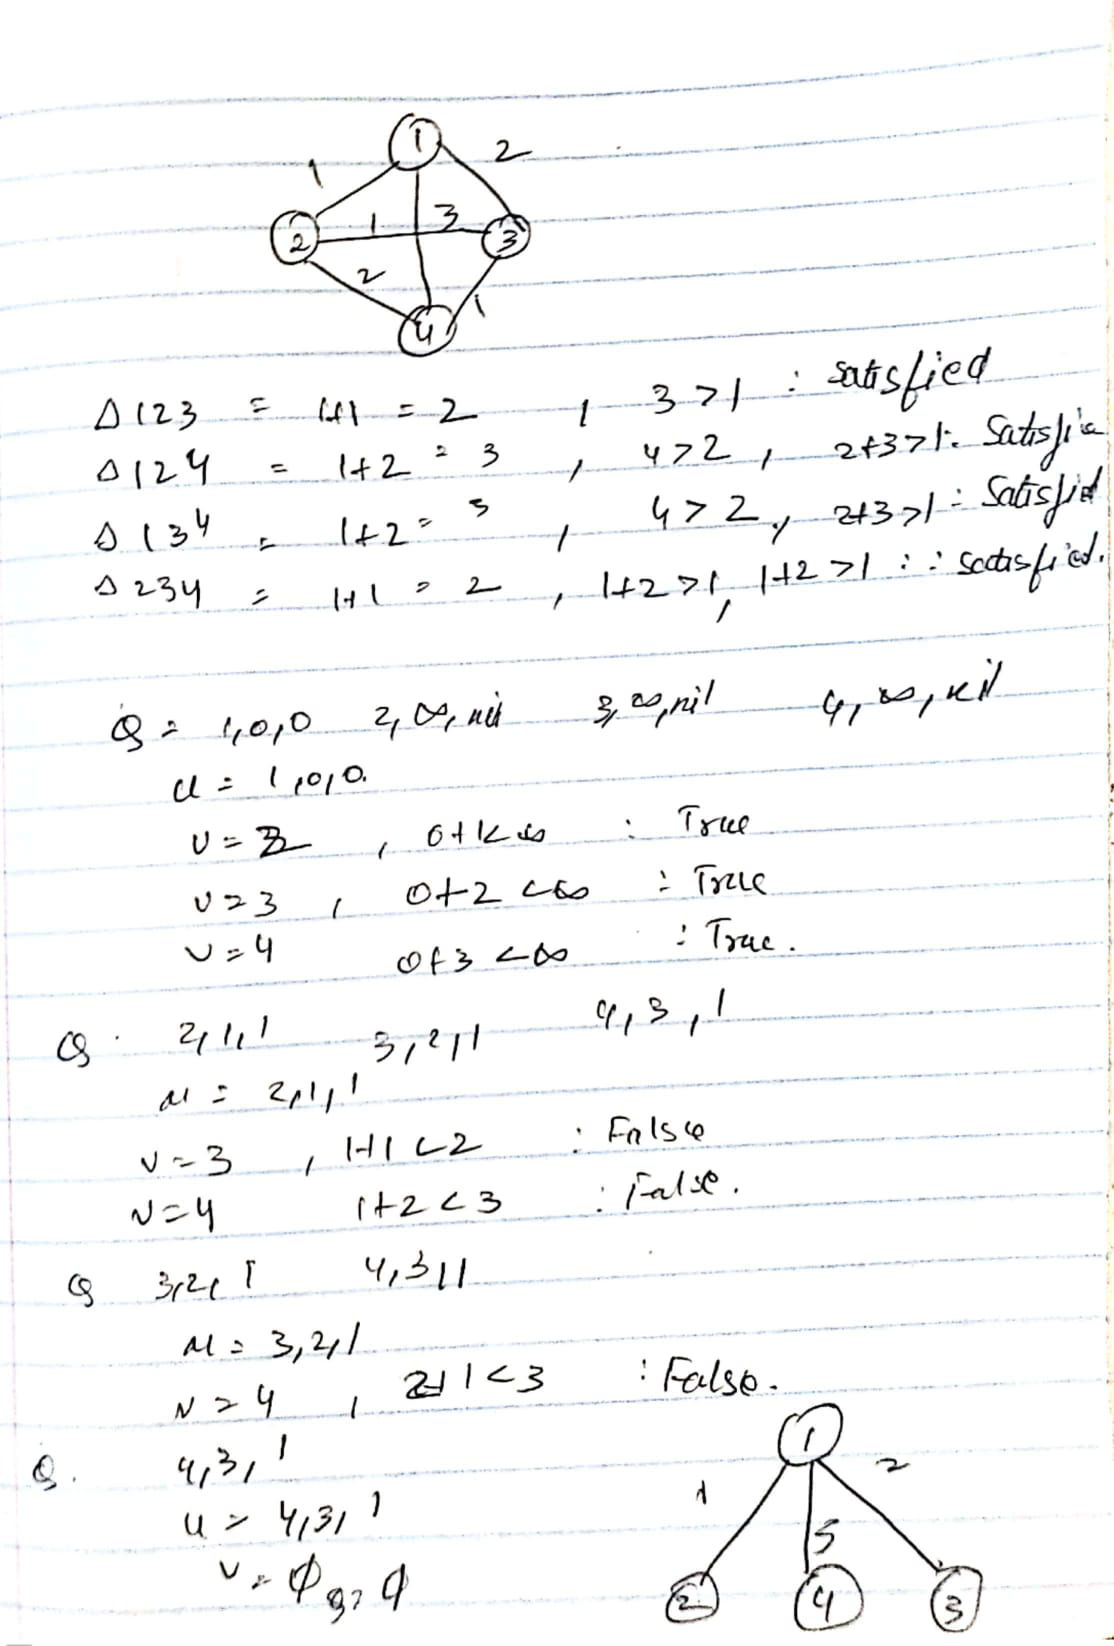 1
1 2
2 1 3 3
2 1
4
Δ123 = 1+1 = 2 , 3>1 : satisfied
Δ124 = 1+2 = 3 , 4>2 , 2+3>1 :
Δ134 = 1+2 = 3 , 4>2 , 2+3>1 : Satisfid
Δ234 = 1+1 = 2 , 1+2>1, 1+2>1 : : satisfied.
Q = 1,0,0 2,∞,nil 3,∞,nil 4,∞,nil
u = 1,0,0.
v = 2 , 0+1<∞ : True
v=3 , 0+2 <∞ : True
v=4 0+3 <∞ : True.
Q. 2,1,1 3,2,1 4,3,1
u = 2,1,1
v=3 , 1+1<2 : False
v=4 1+2<3 : False.
Q 3,2,1 4,3,1
u = 3,2,1
v=4 , 2+1<3 : False.
Q. 4,3,1
u = 4,3,1
v=φ Q=φ
1
1 2
2 4 3